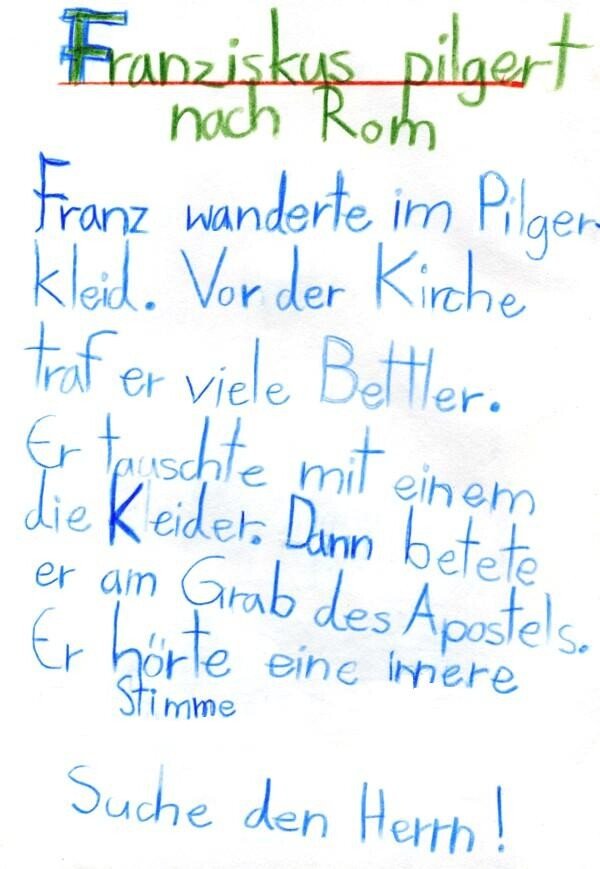 Franziskus pilgert
nach Rom
Franz wanderte im Pilger
kleid. Vor der Kirche
traf er viele Bettler.
Er tauschte mit einem
die Kleider. Dann betete
er am Grab des Apostels.
Er hörte eine innere
Stimme
Suche den Herrn!